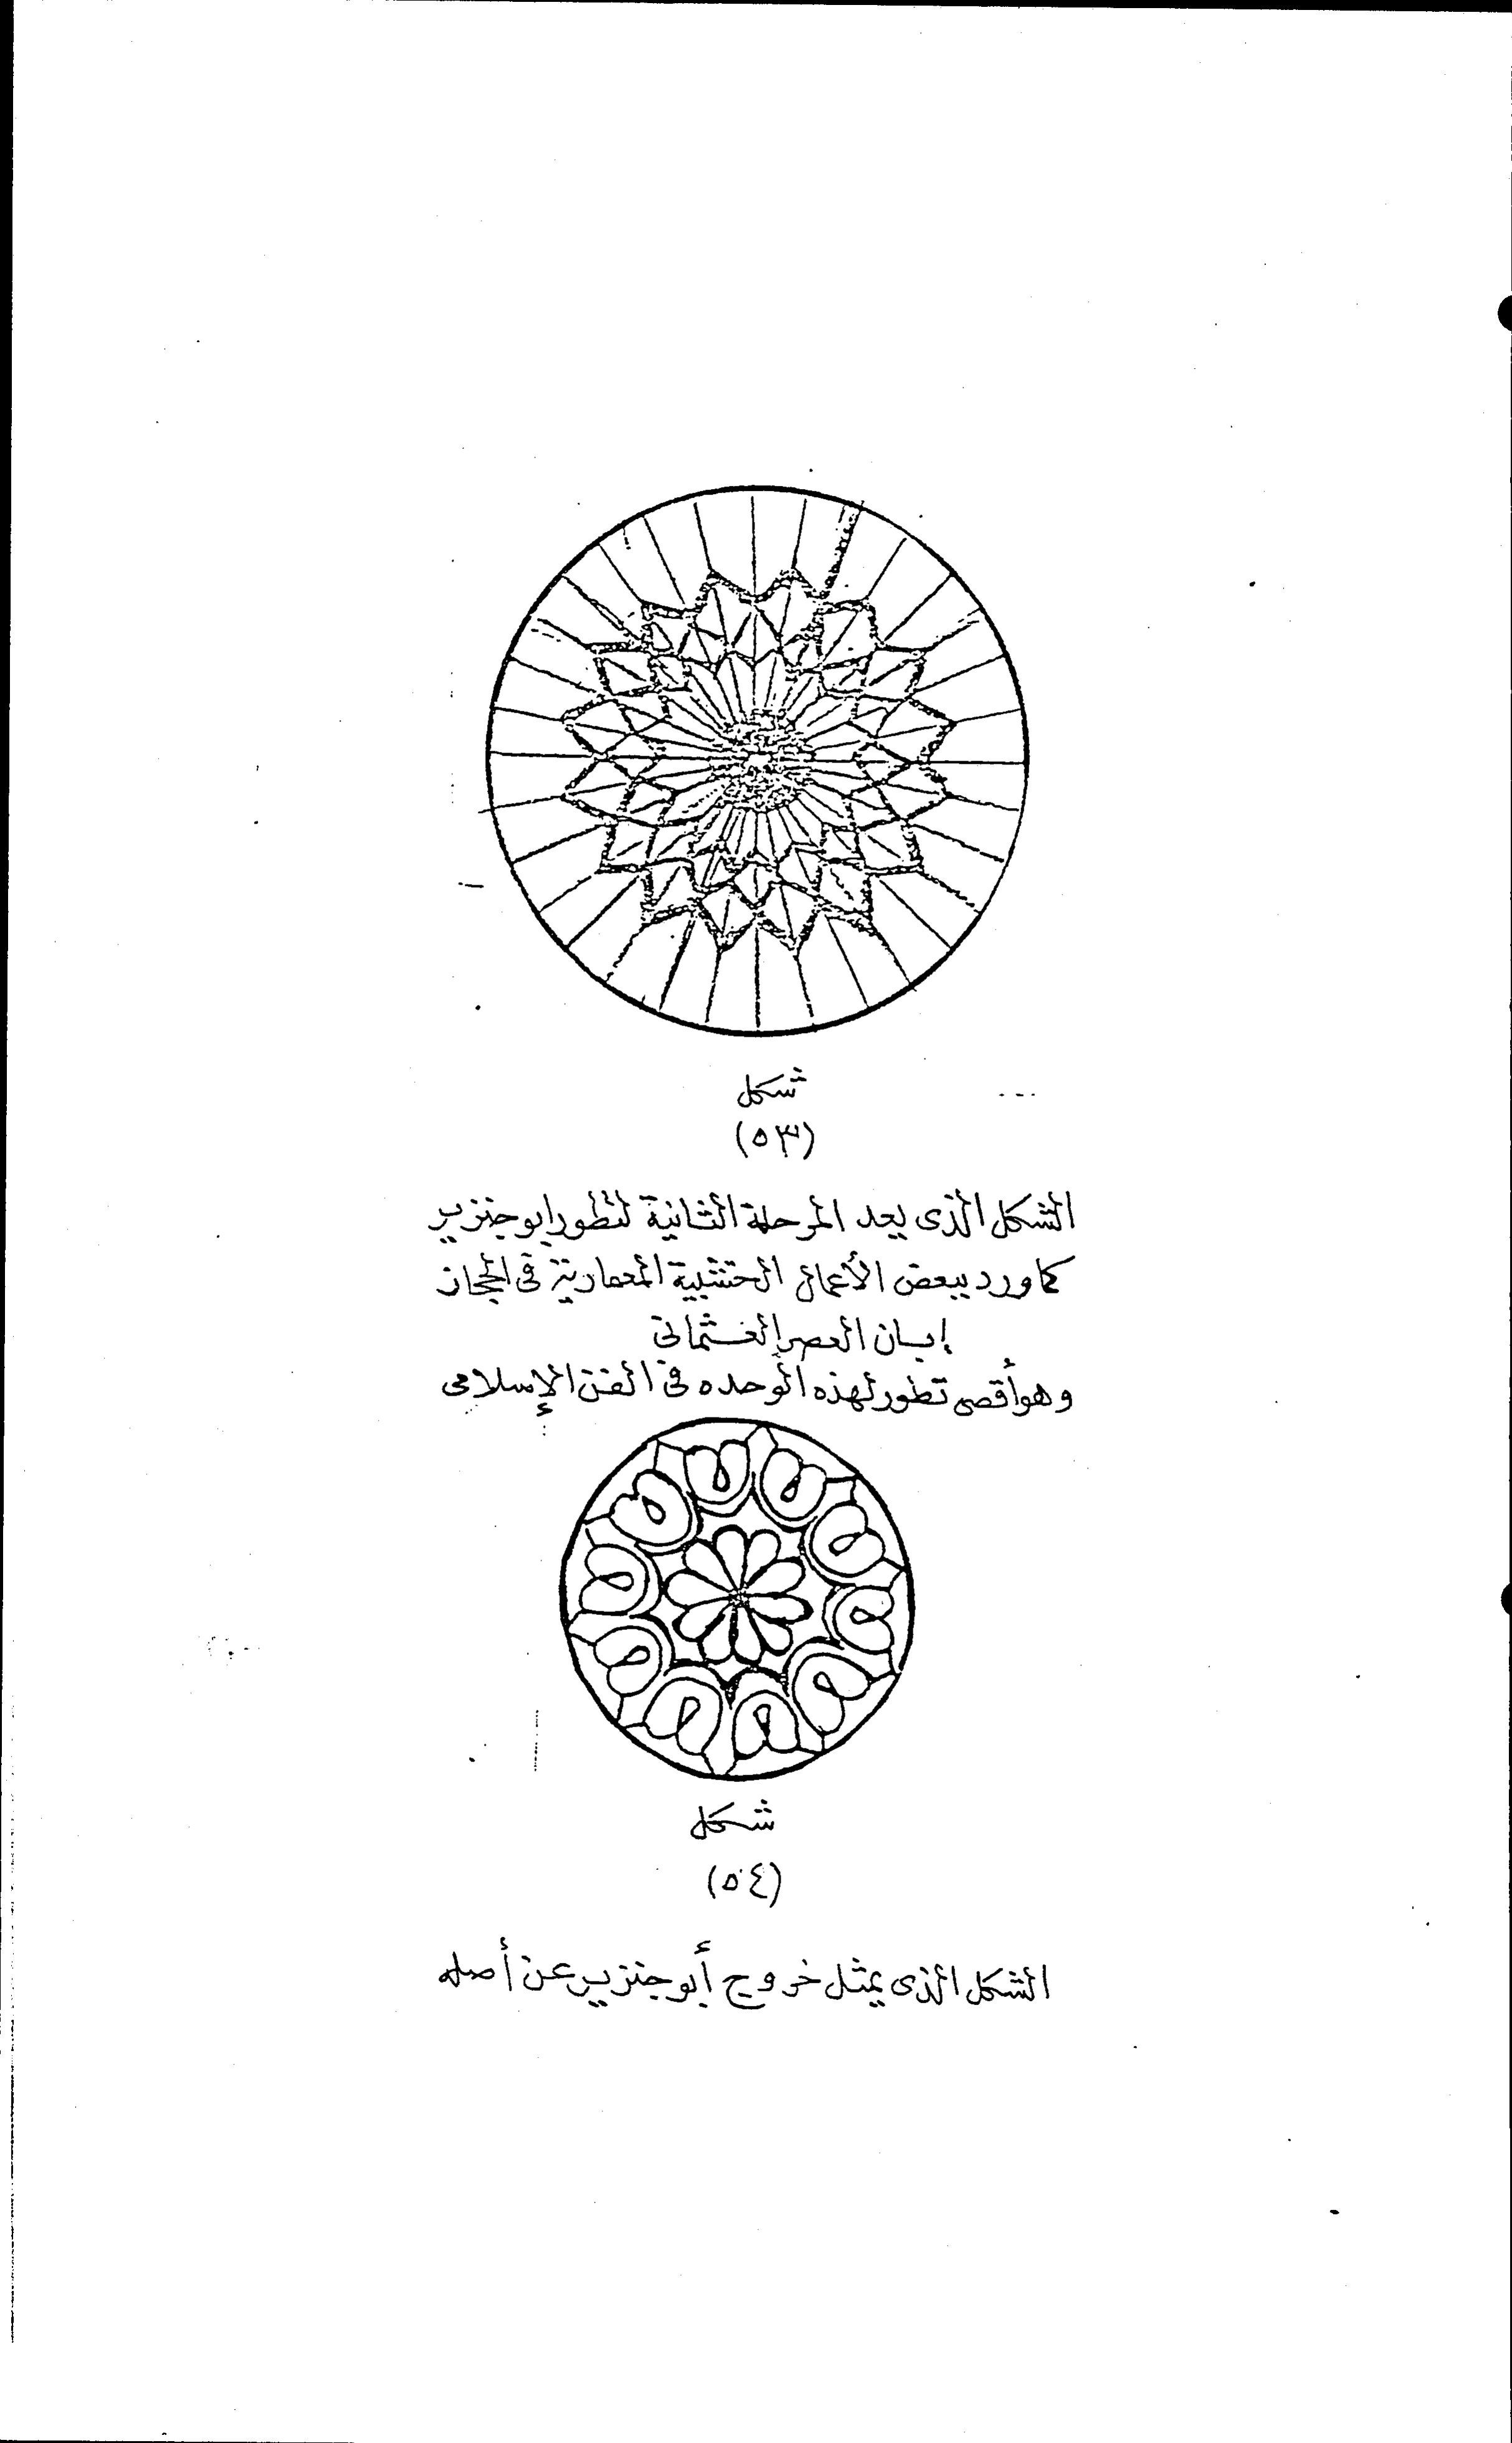 شكل
(٥٣)
الشكل الذى يعد المرحلة الثانية لتطور ابو جنزير
كما ورد ببعض الأعمال الخشبية المعمارية فى الحجاز
إبان العصر العثمانى
وهو أقصى تطور لهذه الوحده فى الفن الإسلامى
شكل
(٥٤)
الشكل الذى يمثل خروج أبو جنزير عن أصله